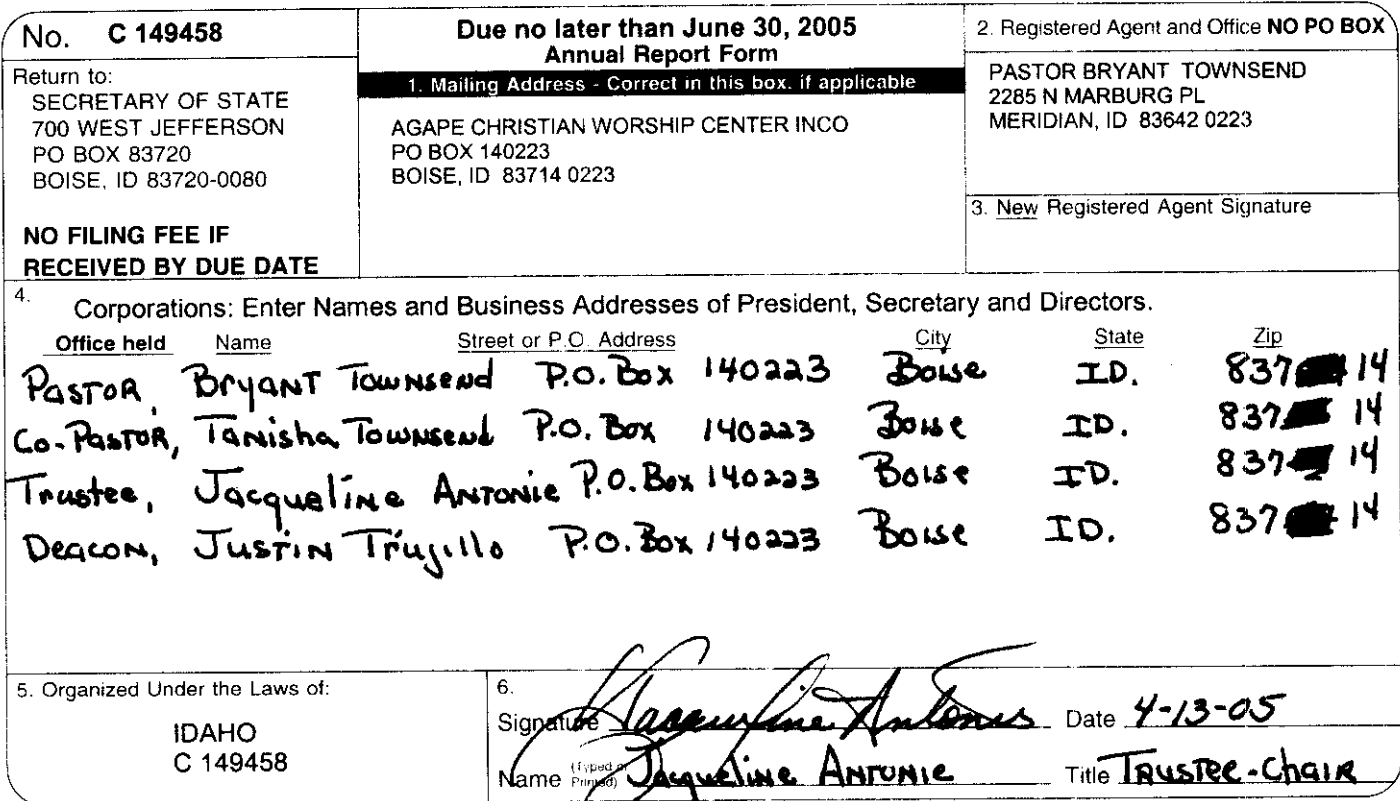 No. C 149458
Return to:
SECRETARY OF STATE
700 WEST JEFFERSON
PO BOX 83720
BOISE, ID 83720-0080
NO FILING FEE IF
RECEIVED BY DUE DATE
Due no later than June 30, 2005
Annual Report Form
1. Mailing Address - Correct in this box. if applicable
AGAPE CHRISTIAN WORSHIP CENTER INCO
PO BOX 140223
BOISE, ID 83714 0223
2. Registered Agent and Office NO PO BOX
PASTOR BRYANT TOWNSEND
2285 N MARBURG PL
MERIDIAN, ID 83642 0223
3. New Registered Agent Signature
4. Corporations: Enter Names and Business Addresses of President, Secretary and Directors.
Office held Name Street or P.O. Address City State Zip
Pastor, Bryant Townsend P.O. Box 140223 Boise ID. 837 14
Co-Pastor, Tanisha Townsend P.O. Box 140223 Boise ID. 837 14
Trustee, Jacqueline Antonie P.O. Box 140223 Boise ID. 837 14
Deacon, Justin Trujillo P.O. Box 140223 Boise ID. 837 14
5. Organized Under the Laws of:
IDAHO
C 149458
6.
Signature Jacqueline Antonie Date 4-13-05
Name (Typed or Printed) Jacqueline Antonie Title Trustee-Chair